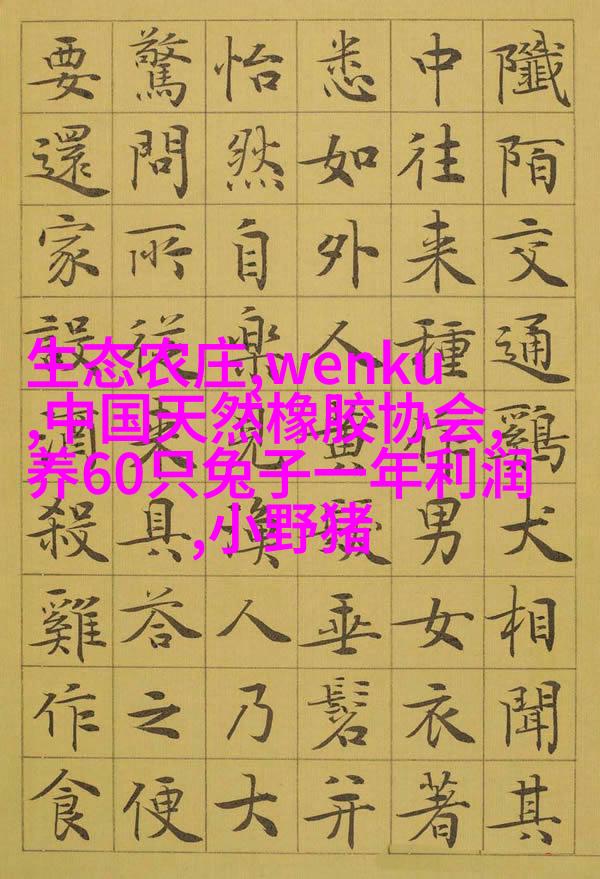 陌交通鷄犬相聞其
中往来種作男女衣著
悉如外人黃髮垂髫并
怡然自樂見人乃大
驚問所從来具答之便
要還家設酒殺雞作食
生态农庄,wenku
,中国天然橡胶协会,
养60只兔子一年利润
,小野猪